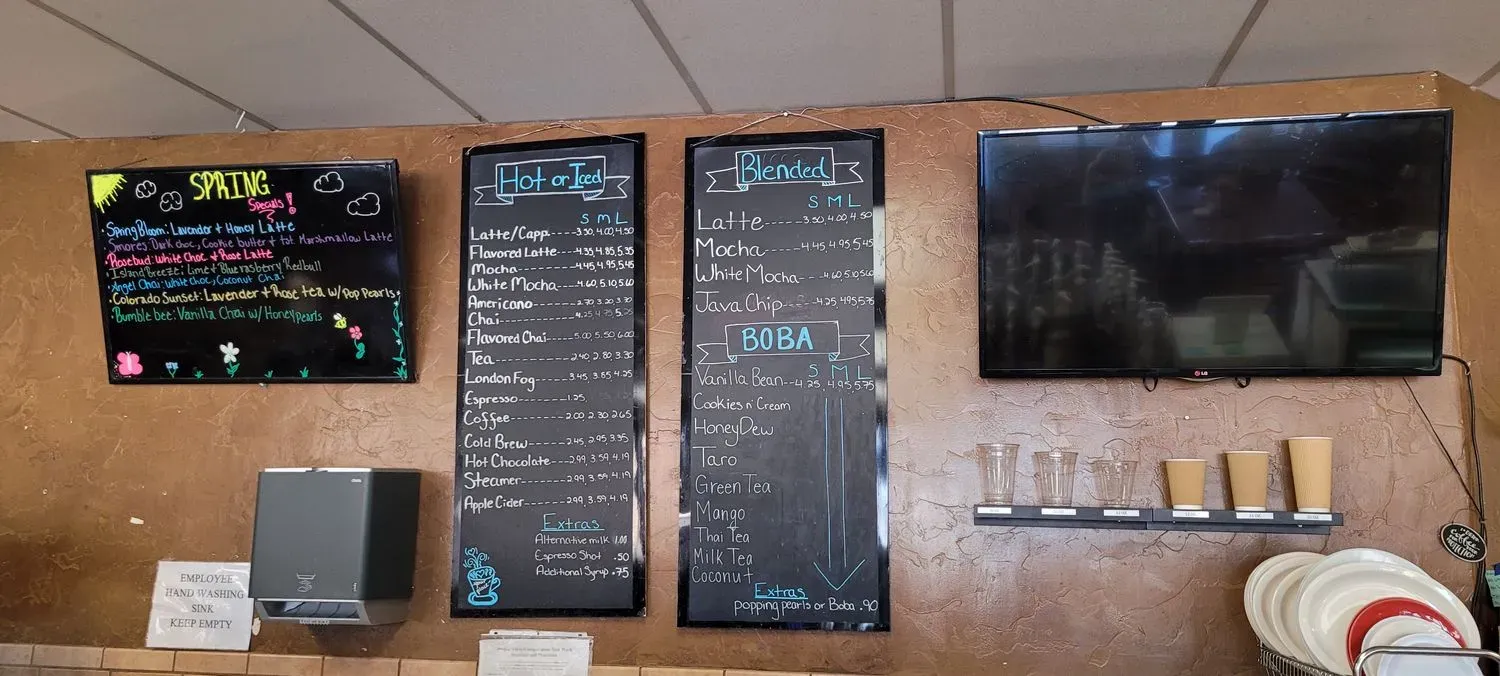 SPRING
Specials!
• Spring Bloom: Lavender + Honey Latte
• Smores: Dark choc, Cookie butter + tst Marshmallow Latte
• Rosebud: White Choc + Rose Latte
• Island Breeze: Lime + Blue rasberry Redbull
• Angel Chai: White choc, Coconut Chai
• Colorado Sunset: Lavender + Rose tea w/ Pop Pearls
• Bumble bee: Vanilla Chai w/ Honey pearls
Hot or Iced
S M L
Latte/Capp.----3.50, 4.00, 4.50
Flavored Latte---4.35, 4.85, 5.35
Mocha-------4.45, 4.95, 5.45
White Mocha----4.60, 5.10, 5.60
Americano-----2.70 3.20, 3.70
Chai-------4.25, 4.75, 5.25
Flavored Chai---5.00, 5.50, 6.00
Tea--------2.40, 2.80, 3.30
London Fog----3.45, 3.85, 4.25
Espresso------1.25,
Coffee------2.00 2.30 2.65
Cold Brew------2.45, 2.95 3.35
Hot Chocolate---2.99, 3.59, 4.19
Steamer------2.99, 3.59, 4.19
Apple Cider----2.99, 3.59, 4.19
Extras
Alternative milk 1.00
Espresso Shot .50
Additional Syrup .75
Blended
S M L
Latte----3.50, 4.00, 4.50
Mocha---4.45, 4.95, 5.45
White Mocha--4.60, 5.10 5.60
Java Chip---4.25, 4.95, 5.75
BOBA
S M L
Vanilla Bean--4.25, 4.95, 5.75
Cookies n' Cream
HoneyDew
Taro
Green Tea
Mango
Thai Tea
Milk Tea
Coconut
Extras
popping pearls or Boba .90
LG
EMPLOYEE
HAND WASHING
SINK
KEEP EMPTY